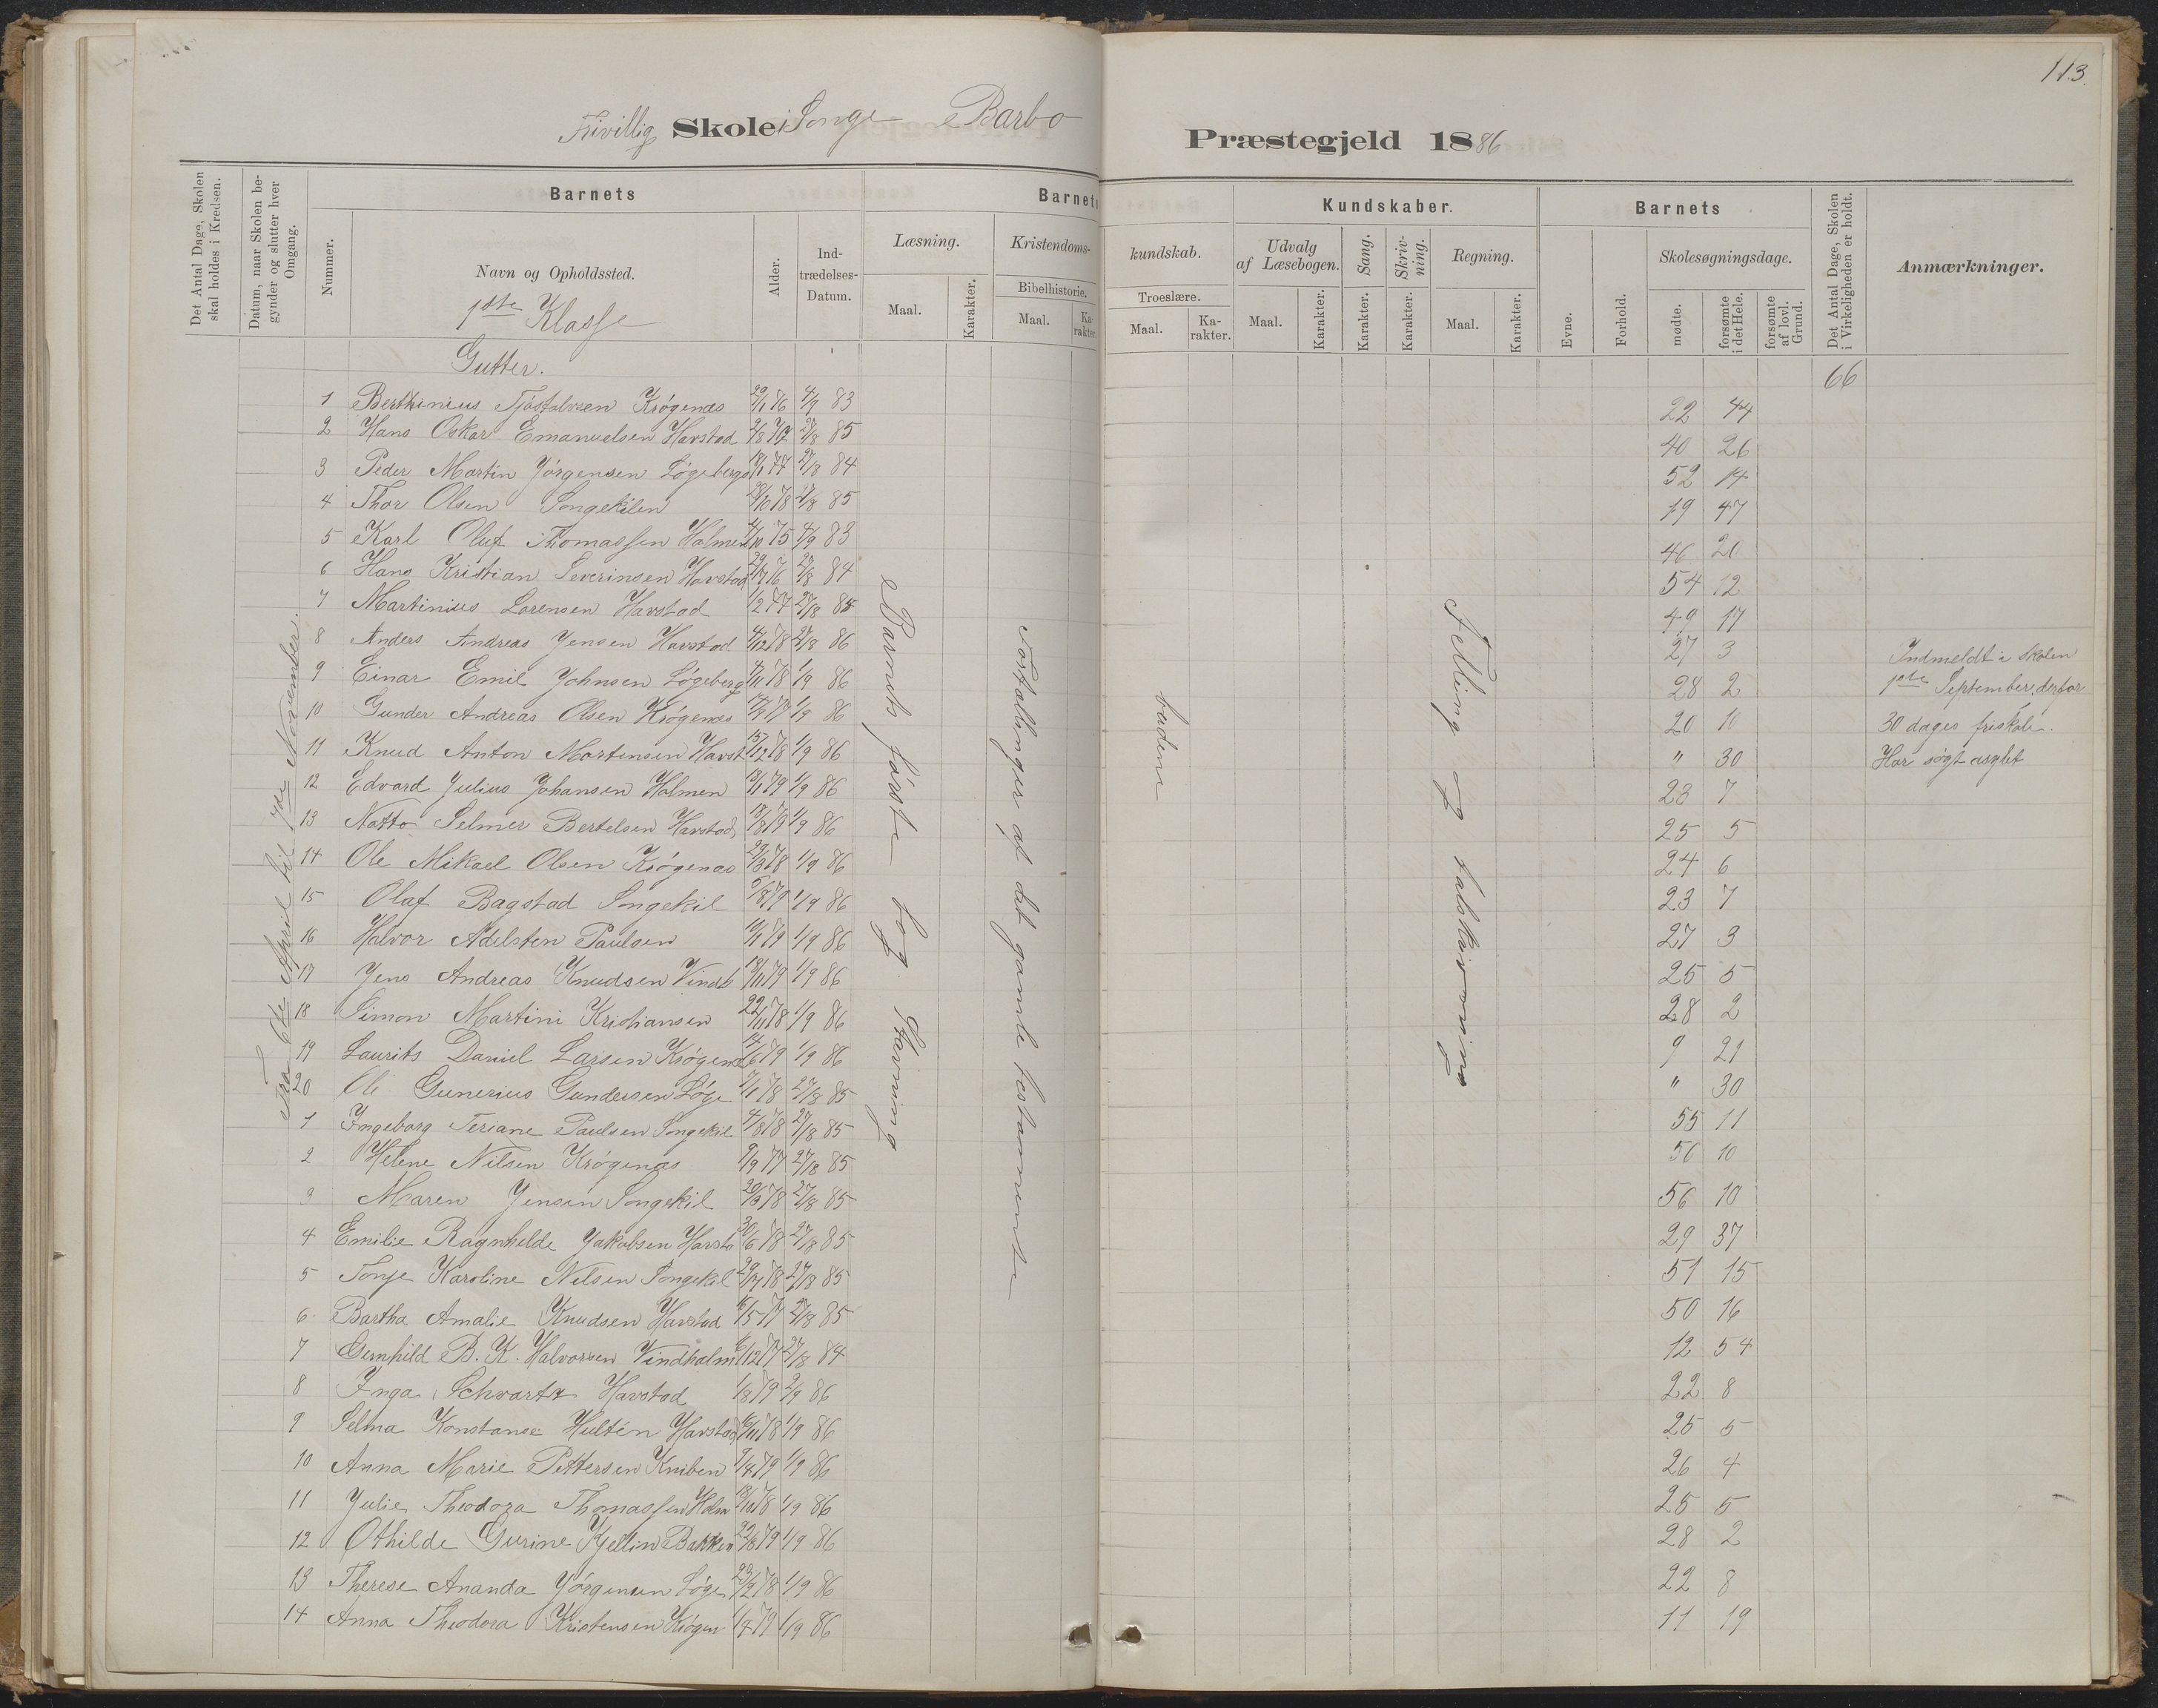 113.
Frivillig Skole i Songe Barbo Præstegjeld 1886
Det Antal Dage, Skolen skal holdes i Kredsen.
Datum, naar Skolen begynder og slutter hver Omgang.
Barnets
Nummer.
Navn og Opholdssted.
Alder.
Indtrædelses-Datum.
Barnets
Læsning.
Maal.
Karakter.
Kristendoms-
Bibelhistorie.
Maal.
Karakter.
kundskab.
Troeslære.
Maal.
Karakter.
Kundskaber.
Udvalg af Læsebogen.
Maal.
Karakter.
Sang.
Karakter.
Skrivning.
Karakter.
Regning.
Maal.
Karakter.
Barnets
Evne.
Forhold.
Skolesøgningsdage.
mødte.
forsømte i det Hele.
forsømte af lovl. Grund.
Det Antal Dage, Skolen i Virkeligheden er holdt.
Anmærkninger.
1ste Klasse
Gutter.
66
Fra 6te April til 7de November.
Barnets første bog. Stavning
Fortællinger af det gamle testamente
badene
Telling og talskrivning
1 Berthinius Tjøstolvsen Krøgenes 29/1 76 4/9 83 22 44
2 Hans Oskar Emanuelsen Havstad 27/8 85 40 26
3 Peder Martin Jørgensen Løgeberg 18/1 77 27/8 84 52 14
4 Thor Olsen Songekilen 28/10 78 27/8 85 19 47
5 Karl Oluf Thomassen Holmen 4/10 75 4/9 83 46 20
6 Hans Kristian Severinsen Havstad 29/7 76 27/8 84 54 12
7 Martinius Lorensen Havstad 1/2 77 27/8 85 49 17
8 Anders Andreas Jensen Havstad 4/12 78 27/8 86 27 3
9 Einar Emil Johnsen Løgeberg 4/11 78 1/9 86 28 2
10 Gunder Andreas Olsen Krøgenes 1/9 86 20 10
11 Knud Anton Mortensen Havst 13/12 78 1/9 86 " 30
Indmeldt i skolen
1ste September, derfor
30 dages friskole.
Har søgt asylet
12 Edvard Julius Johansen Holmen 18/1 79 1/9 86 23 7
13 Natto Selmer Bertelsen Havstad 18/8 79 1/9 86 25 5
14 Ole Mikael Olsen Krøgenes 29/3 78 1/9 86 24 6
15 Olaf Bagstad Songekil 5/8 79 1/9 86 23 7
16 Halvor Adelsten Paulsen 10/1 79 1/9 86 27 3
17 Jens Andreas Knudsen Vindh 18/11 79 1/9 86 25 5
18 Simon Martini Kristiansen 22/11 78 1/9 86 28 2
19 Laurits Daniel Larsen Krøgenes 14/6 79 1/9 86 9 21
20 Ole Gunerius Gundersen Løge 7/1 78 27/8 85 " 30
1 Ingeborg Teriane Paulsen Songekil 4/8 78 27/8 85 55 11
2 Helene Nilsen Krøgenes 9/9 77 27/8 85 56 10
3 Maren Jensen Songekil 20/9 78 27/8 85 56 10
4 Emilie Ragnhilde Jakobsen Havsta 30/6 78 27/8 85 29 37
5 Tonje Karoline Nilsen Songekil 29/7 78 27/8 85 51 15
6 Bartha Amalie Knudsen Havstad 16/5 77 27/8 85 50 16
7 Gernhild B. K. Halvorsen Vindholm 6/12 77 27/8 84 12 54
8 Inga Schvartz Havstad 1/8 79 2/9 86 22 8
9 Selma Konstanse Hultén Havstad 16/11 78 1/9 86 25 5
10 Anna Marie Pettersen Kniben 9/4 79 1/9 86 26 4
11 Julie Theodora Thomassen Holm 18/10 78 1/9 86 25 5
12 Othilde Gurine Kjellin Bakken 22/6 79 1/9 86 28 2
13 Therese Ananda Jørgensen Løge 23/12 78 1/9 86 22 8
14 Anna Theodora Kristensen Krøgen 1/4 79 1/9 86 11 19